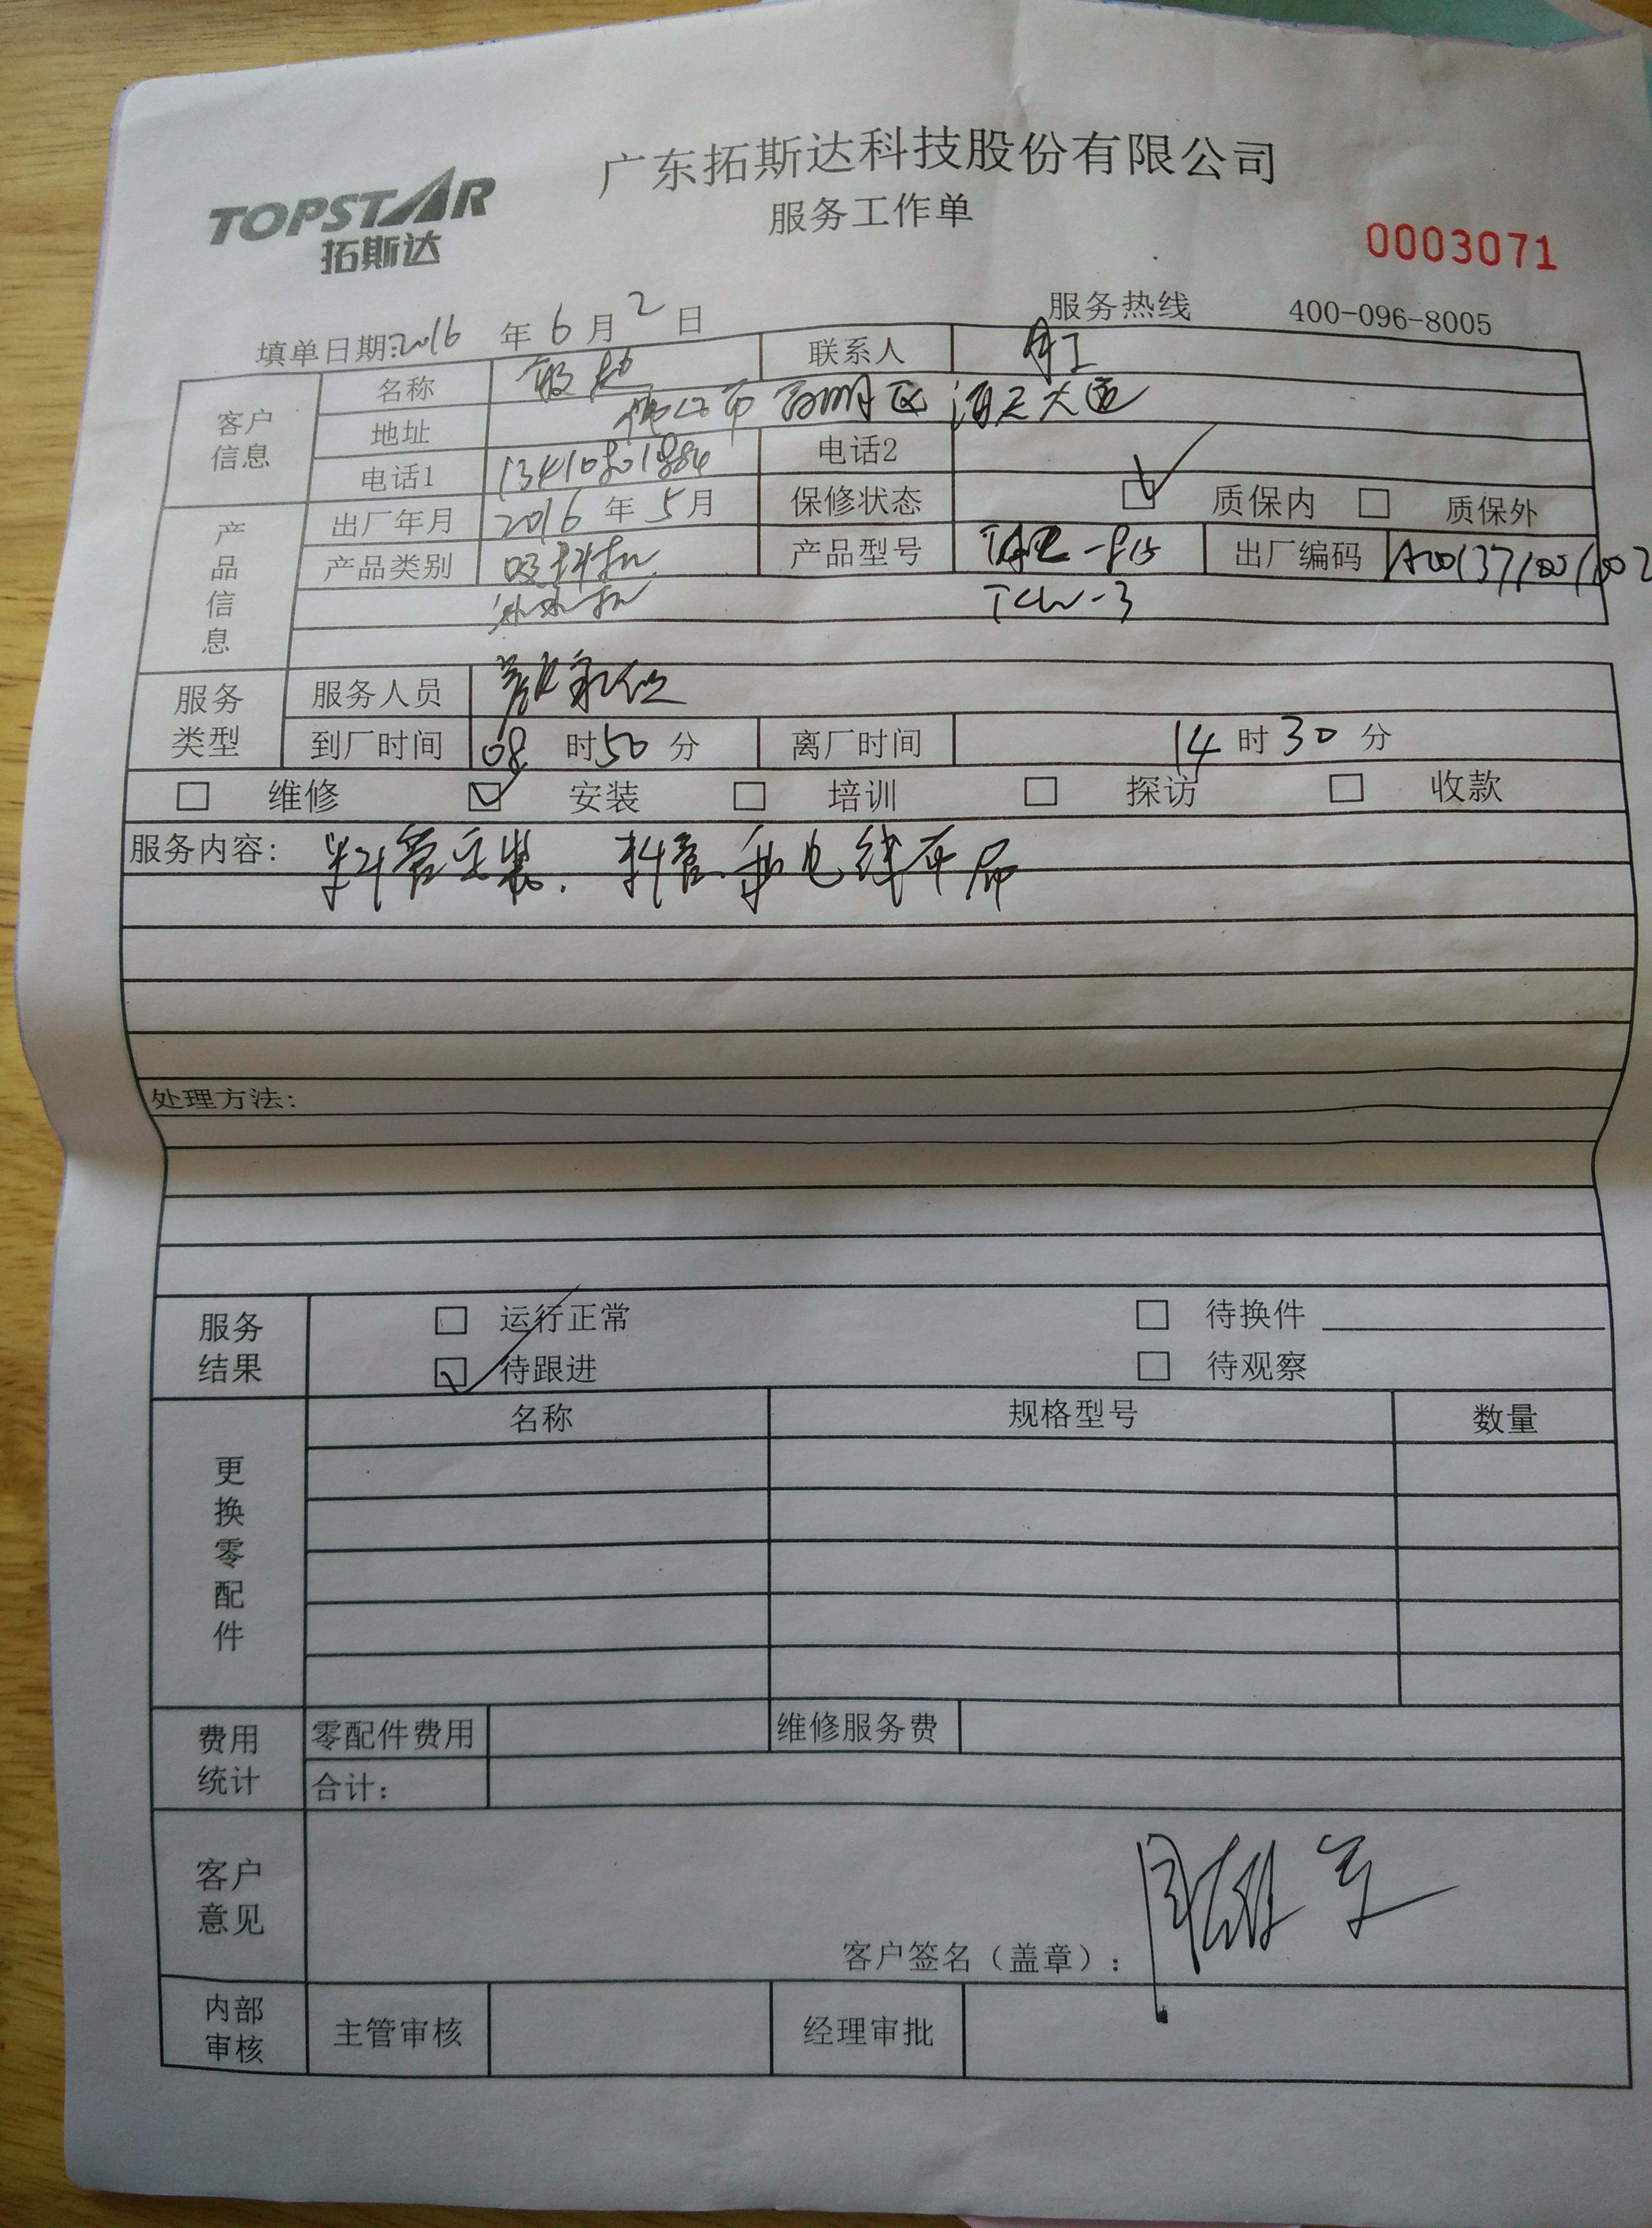 TOPSTAR
拓斯达
广东拓斯达科技股份有限公司
服务工作单
0003071
填单日期:2016 年 6 月 2 日 服务热线 400-096-8005
客户信息 名称 联系人
地址 市高明区 大道
电话1 电话2
产品信息 出厂年月 2016 年 5 月 保修状态 ☑ 质保内 □ 质保外
产品类别 吸料机 产品型号 出厂编码
冰水机 TCW-3
服务类型 服务人员
到厂时间 08 时 50 分 离厂时间 14 时 30 分
□ 维修 ☑ 安装 □ 培训 □ 探访 □ 收款
服务内容: 料管安装. 料管和电线布局
处理方法:
服务结果 □ 运行正常 □ 待换件
☑ 待跟进 □ 待观察
更换零配件 名称 规格型号 数量
费用统计 零配件费用 维修服务费
合计:
客户意见
客户签名（盖章）:
内部审核 主管审核 经理审批